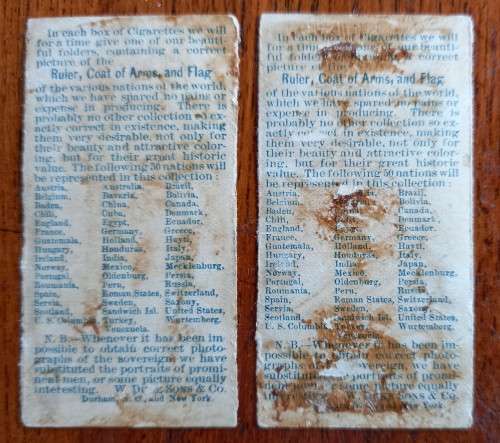 In each box of Cigarettes we will
for a time give one of our beauti-
ful folders, containing a correct
picture of the
Ruler, Coat of Arms, and Flag
of the various nations of the world,
which we have spared no pains or
expense in producing. There is
probably no other collection so ex-
actly correct in existence, making
them very desirable, not only for
their beauty and attractive color-
ing, but for their great historic
value. The following 50 nations will
be represented in this collection:
Austria, Australia, Brazil,
Belgium, Bavaria, Bolivia,
Baden, China, Canada,
Chili, Cuba, Denmark,
England, Egypt, Ecuador,
France, Germany, Greece,
Guatemala, Holland, Hayti,
Hungary, Honduras, Italy,
Ireland, India, Japan,
Norway, Mexico, Mecklenburg,
Portugal, Oldenburg, Persia,
Roumania, Peru, Russia,
Spain, Roman States, Switzerland,
Servia, Sweden, Saxony,
Scotland, Sandwich Isl. United States,
U. S. Columbia, Turkey, Wurtemberg.
Venezuela.
N. B.—Whenever it has been im-
possible to obtain correct photo-
graphs of the sovereign we have
substituted the portraits of promi-
nent men, or some picture equally
interesting. W. Sons & Co.
Durham, and New York.
In each box of Cigarettes we will
for a time one of our beauti-
ful folders, a correct
picture the
Ruler, Coat of Arms, and Flag
of the various nations of the world,
which we have spared no pains or
expense in producing. There is
probably no other collection so ex-
actly correct in existence, making
them very desirable, not only for
their beauty and attractive color-
ing, but for their great historic
value. The following 50 nations will
be represented in this collection:
Austria, Brazil,
Belgium, Bolivia,
Baden, Canada,
Chili, Denmark,
England, Ecuador,
France, Germany, Greece,
Guatemala, Holland, Hayti,
Hungary, Honduras, Italy,
Ireland, India, Japan,
Norway, Mexico, Mecklenburg,
Portugal, Oldenburg, Persia,
Roumania, Peru, Russia,
Spain, Roman States, Switzerland,
Servia, Sweden, Saxony,
Scotland, Sandwich Isl. United States,
U. S. Columbia, Turkey, Wurtemberg.
N. B.—Whenever it has been im-
possible to obtain correct photo-
graphs of sovereign, we have
substituted portraits of promi-
nent or some picture equally
Sons & Co.
New York.